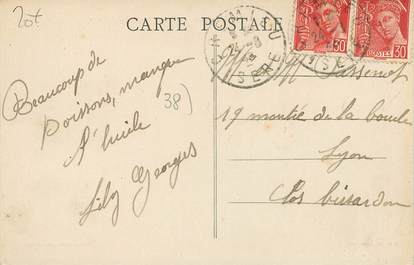 20t
CARTE POSTALE
Beaucoup de
poissons, manque
l'huile
Lily Georges
38)
30
POSTES
30
Mr Mme
19 montée de la boucle
Lyon
Clos bissardon